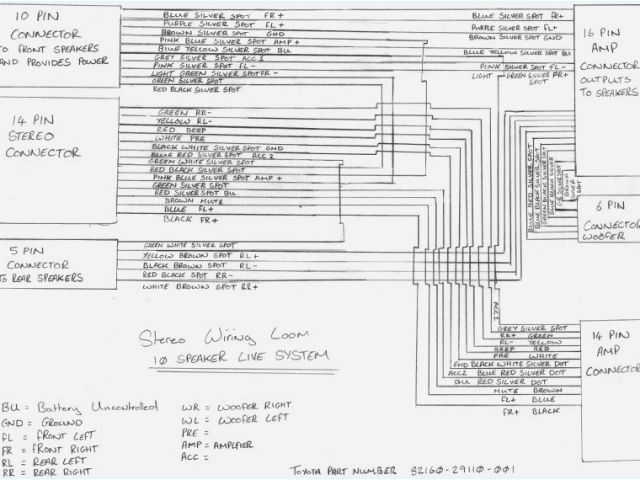 10 PIN
CONNECTOR
TO FRONT SPEAKERS
AND PROVIDES POWER
BLUE SILVER SPOT FR+
PURPLE SILVER SPOT FL+
BROWN SILVER SPOT GND
PINK BLUE SILVER SPOT AMP+
BLUE YELLOW SILVER SPOT BU
GREY SILVER SPOT ACC 1
PINK SILVER SPOT FL-
LIGHT GREEN SILVER SPOT FR-
GREEN SILVER SPOT
RED BLACK SILVER SPOT
BLUE SILVER SPOT FR+
PURPLE SILVER SPOT FL+
BROWN SILVER SPOT GND
BLUE YELLOW SILVER SPOT BU
PINK SILVER SPOT FL-
LIGHT GREEN SILVER SPOT FR+
16 PIN
AMP
CONNECTOR
OUTPUTS
TO SPEAKERS
14 PIN
STEREO
CONNECTOR
GREEN RR-
YELLOW RL-
RED BEEP
WHITE PRE
BLACK WHITE SILVER SPOT GND
BLUE RED SILVER SPOT ACC 2
GREEN WHITE SILVER SPOT
RED BLACK SILVER SPOT
PINK BLUE SILVER SPOT AMP+
GREEN SILVER SPOT
RED SILVER SPOT BU
BROWN MUTE
BLUE FL+
BLACK FR+
BLUE RED SILVER SPOT
6 PIN
CONNECTOR
WOOFER
5 PIN
CONNECTOR
TO REAR SPEAKERS
GREEN WHITE SILVER SPOT
YELLOW BROWN SPOT RL+
BLACK BROWN SPOT RL-
RED BLACK SPOT RR-
WHITE BROWN SPOT RR+
ACC 1
GREY SILVER SPOT
RR+ GREEN
RL- YELLOW
BEEP RED
PRE WHITE
GND BLACK WHITE SILVER DOT
ACC2 BLUE RED SILVER DOT
BU RED SILVER DOT
MUTE BROWN
FL+ BLUE
FR+ BLACK
14 PIN
AMP
CONNECTOR
Stereo Wiring Loom
10 SPEAKER LIVE SYSTEM
BU = Battery Uncontrolled
GND = GROUND
FL = FRONT LEFT
FR = FRONT RIGHT
RL = REAR LEFT
RR = REAR RIGHT
WR = WOOFER RIGHT
WL = WOOFER LEFT
PRE =
AMP = AMPLFIER
ACC =
TOYOTA PART NUMBER 82160-29110-001